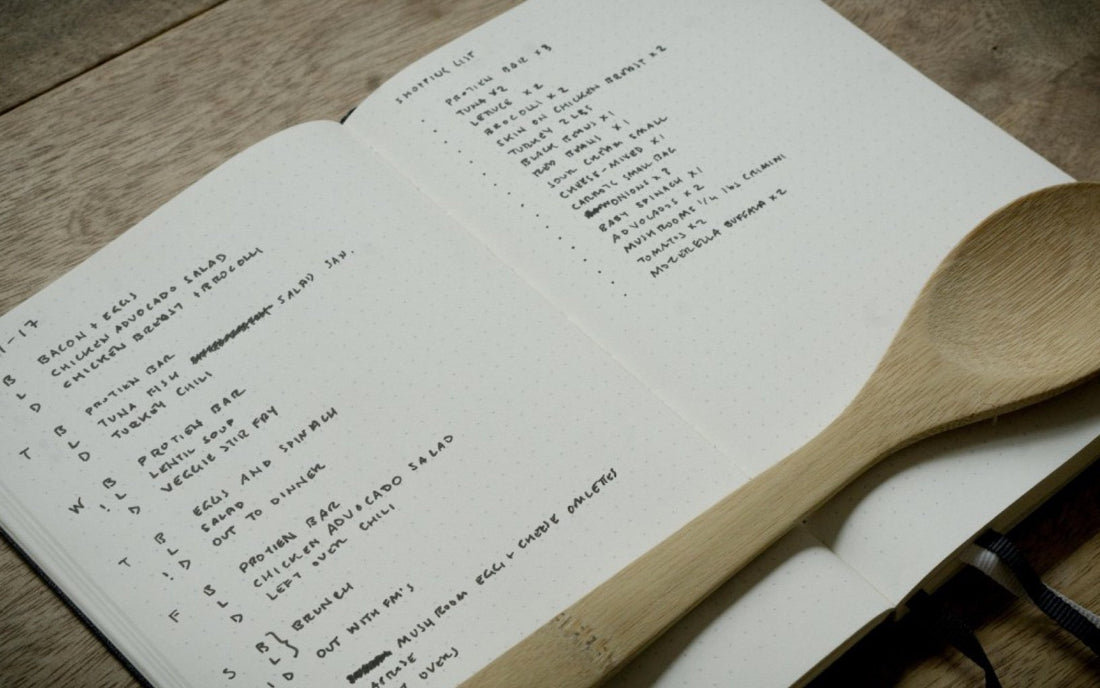 1-17
B BACON + EGGS
L CHICKEN ADVOCADO SALAD
D CHICKEN BREAST + BROCOLLI
T B PROTIEN BAR
L TUNA FISH SALAD SAN.
D TURKEY CHILI
W B PROTIEN BAR
! L LENTIL SOUP
D VEGGIE STIR FRY
T B EGGS AND SPINACH
L SALAD
! D OUT TO DINNER
F B PROTIEN BAR
L CHICKEN ADVOCADO SALAD
D LEFT OVER CHILI
S B } BRUNCH
L
! D OUT WITH FAM'S
MUSHROOM EGG + CHEESE OMLETTES
T OVERS
SHOPPING LIST
PROTIEN BAR X8
TUNA X2
LETUCE X2
BROCOLLI X2
SKIN ON CHICKEN BREAST X2
TURKEY 2 LBS
BLACK BEANS X1
RED BEANS X1
SOUR CREAM SMALL
CHEESE-MIXED X1
CARROTS SMALL BAG
ONIONS X3
BABY SPINACH X1
ADVOCADOS X2
MUSHROOMS 1/4 lbs CRIMINI
TOMATOS X2
MOZERELLA BUFFALA X2